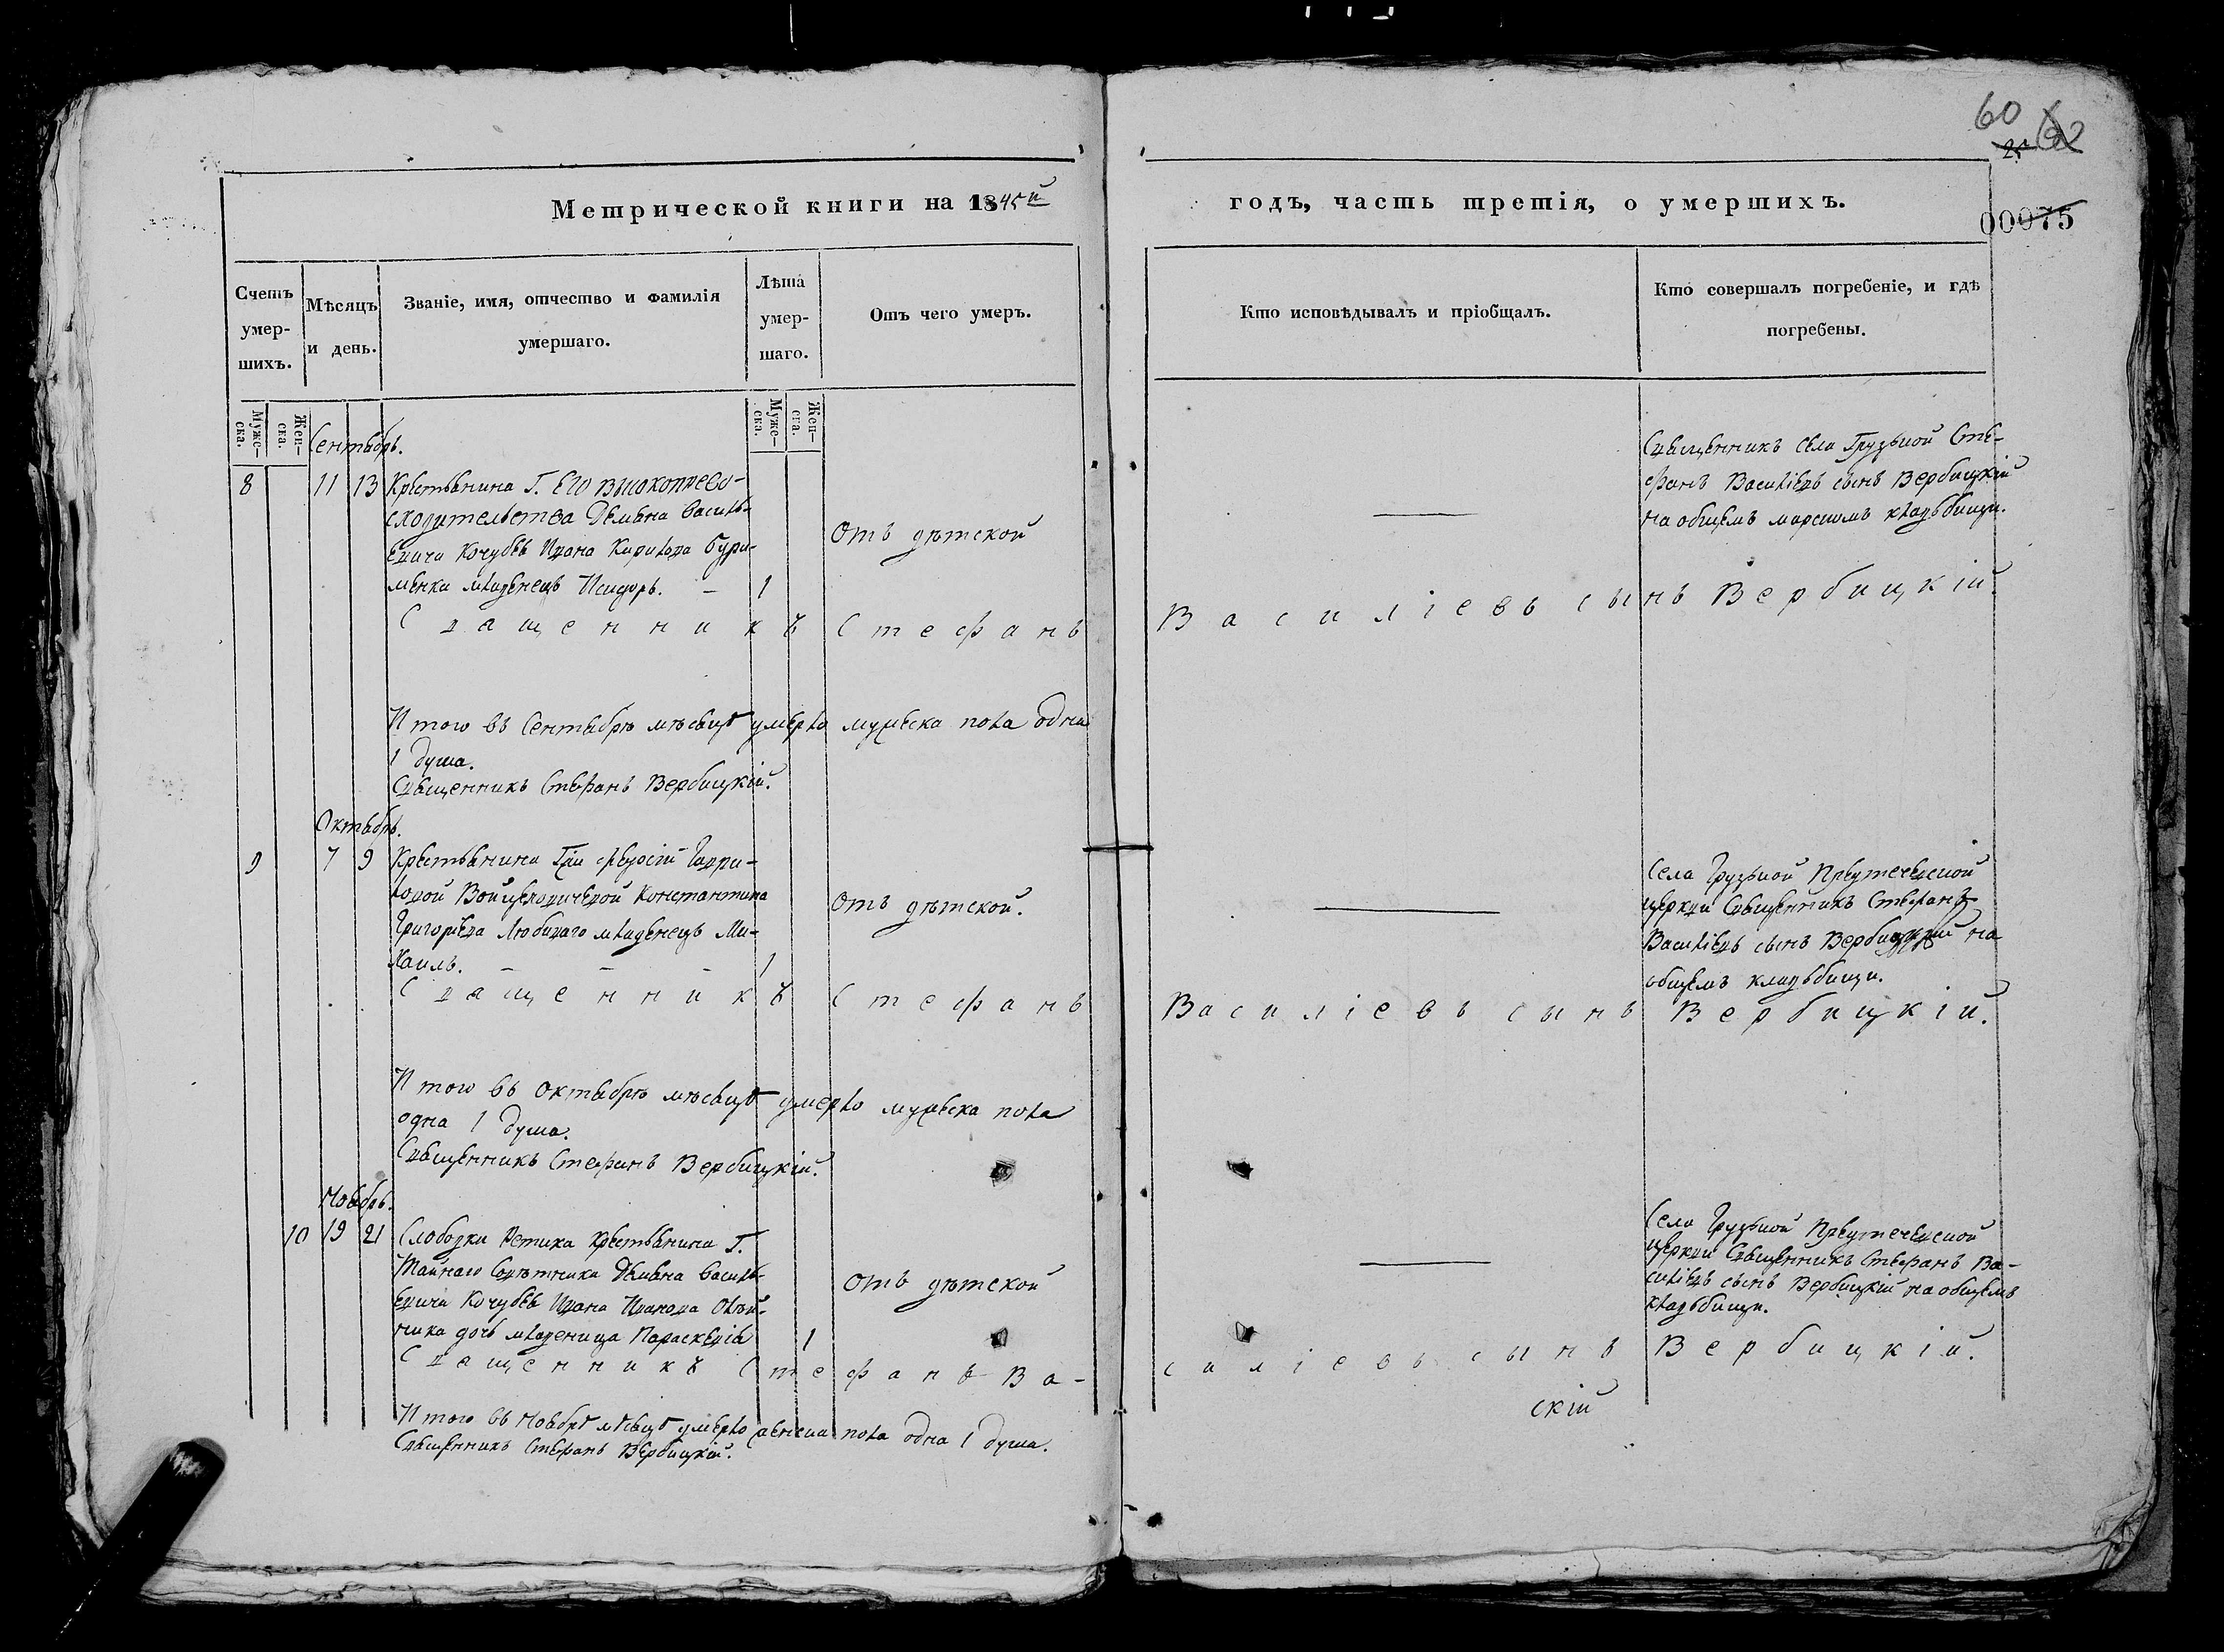 60 62
25
00075
Метрической книги на 1845й
годъ, часть третія, о умершихъ.
Счетъ умер-шихъ.
Мѣсяцъ и день.
Званіе, имя, отчество и фамилія умершаго.
Лѣта умер-шаго.
Отъ чего умеръ.
Кто исповѣдывалъ и пріобщалъ.
Кто совершалъ погребеніе, и гдѣ погребены.
Муже-ска.
Жен-ска.
Муже-ска.
Жен-ска.
Сентябрь.
8 11 13 Крестьянина Г. Его высокопрево-
сходительства Демяна Василь-
евича Кочубея Ивана Кирилова Бури-
менка младенецъ Исидоръ. – 1
Отъ дѣтской
Священникъ села Грузкой Сте-
фанъ Василіевъ сынъ Вербицкій
на общемъ кладъбищи.
Священникъ Стефанъ Василіевъ сынъ Вербицкій.
Итого въ Сентябрѣ мѣсяцѣ умерло мужеска пола одна
1 душа.
Священникъ Стефанъ Вербицкій.
Октябрь.
9 7 9 Крестьянина Гжи Федосіи Гаври-
ловой Войцеховичевой Константина
Григорьева Любиваго младенецъ Ми-
хаилъ. – – – 1
Отъ дѣтской.
Села Грузкой Предтечевской
церкви Священникъ Стефанъ
Василіевъ сынъ Вербицкій на
общемъ кладъбищи.
Священникъ Стефанъ Василіевъ сынъ Вербицкій.
Итого въ Октябрѣ мѣсяцѣ умерло мужеска пола
одна 1 душа.
Священникъ Стефанъ Вербицкій.
Ноябрь.
10 19 21 Слободки Ретика Крестьянина Г.
Тайнаго Совѣтника Демяна Василь-
евича Кочубея Ивана Иванова Олѣй-
ника дочь младеница Параскевія 1
Отъ дѣтской
Села Грузкой Предтечевской
Церкви Священникъ Стефанъ Ва-
силіевъ сынъ Вербицкій на общемъ
кладъбищи.
Священникъ Стефанъ Ва-силіевъ сынъ Вербицкій.
скій
Итого въ Ноябрѣ мѣсяцѣ умерло женска пола одна 1 душа.
Священникъ Стефанъ Вербицкій.